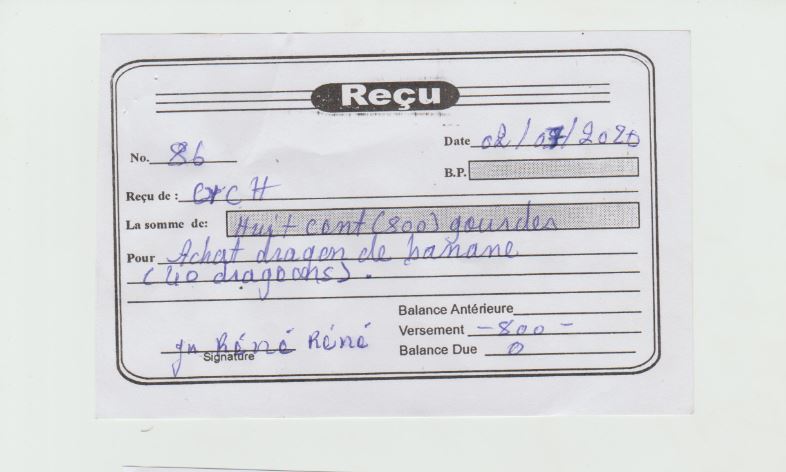 Reçu
No. 86
Date 02/07/2020
B.P.
Reçu de : crcH
La somme de: Huit cent (800) gourdes
Pour Achat dragon de banane
(40 dragoons).
Balance Antérieure
Versement - 800 -
Balance Due 0
Jn Réné Réné
Signature